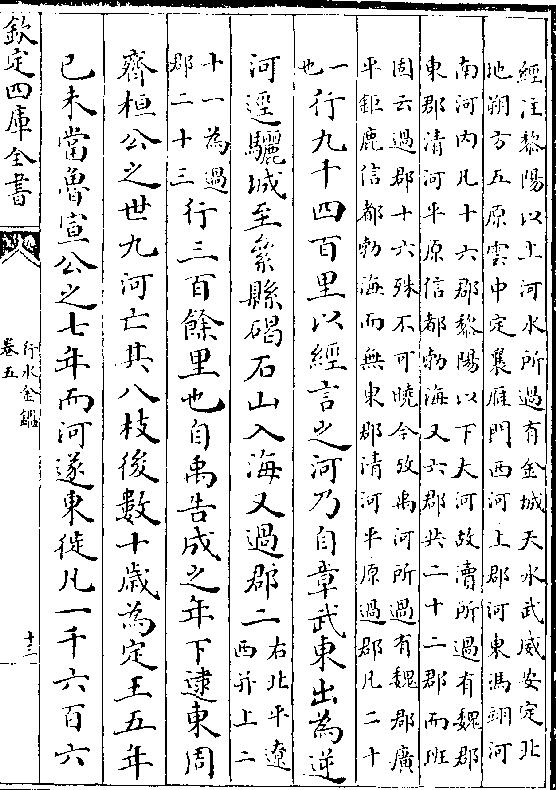 經注黎陽以上河水所過有金城天水武威安定北
地朔方五原雲中定襄雁門西河上郡河東馮翊河
南河內凡十六郡黎陽以下大河故瀆所過有魏郡
東郡清河平原信都勃海又六郡共二十二郡而班
固云過郡十六殊不可曉今攷禹河所過有魏郡廣
平鉅鹿信都勃海而無東郡清河平原過郡凡二十
一
也
行九千四百里以經言之河乃自章武東出為逆
河逕驪城至絫縣碣石山入海又過郡二
右北平遼
西并上二
十一為過
郡二十三
行三百餘里也自禹告成之年下逮東周
齊桓公之世九河亡其八枝後數十歲為定王五年
己未當魯宣公之七年而河遂東徙凡一千六百六
欽定四庫全書
行水金鑑
卷五
十三